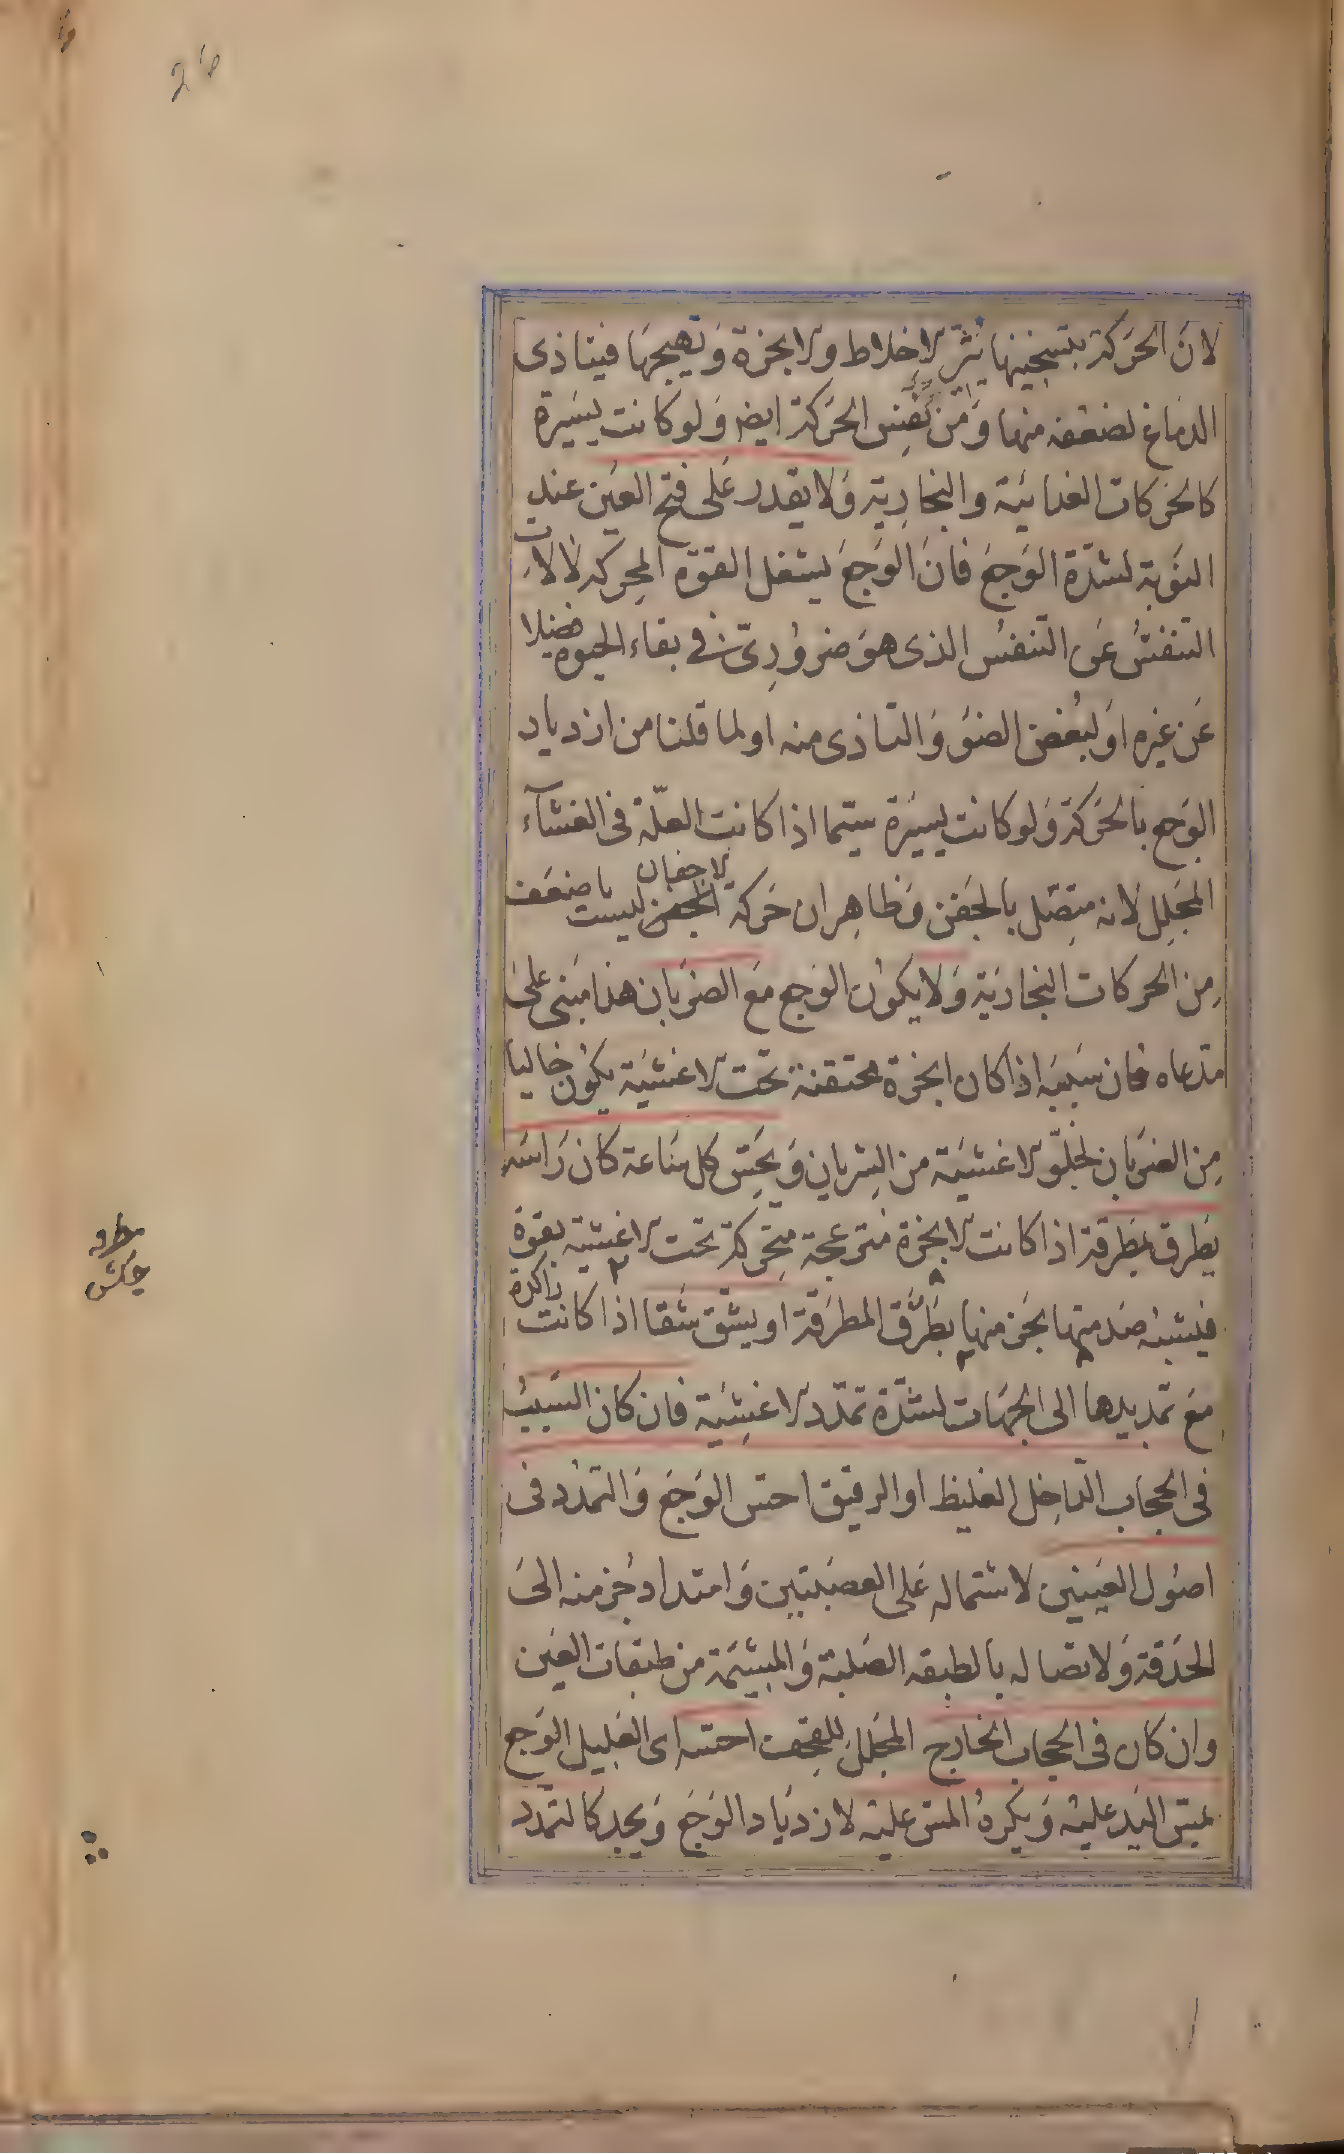 لان الحركة بتسخينها تثير الاخلاط والابخرة وتهيجها فيتاذى
الدماغ لضعفه منها ومن نفس الحركة ايضا ولو كانت يسيرة
كالحركات الغذائية والبخارية ولا يقدر على فتح العين عند
النوبة لشدة الوجع فان الوجع يشغل القوة المحركة لالات
التنفس عن التنفس الذى هو ضرورى فى بقاء الحيوة فضلا
عن غيره او لبغض الضوء والتاذى منه او لما قلنا من ازدياد
الوجع بالحركة ولو كانت يسيرة سيما اذا كانت العلة فى الغشآء
المجلل لانه متصل بالجفن وظاهر ان حركة الاجفان ليست باضعف
من الحركات البخارية ولا يكون الوجع مع الضربان هذا مبنى على
مدعاه فان سببه اذا كان ابخرة محتقنة تحت الاغشية يكون خاليا
من الضربان لخلو الاغشية من الشريان ويحس كل ساعة كان راسه
يطرق بمطرقة اذا كانت الابخرة منزعجة متحركة تحت الاغشية بقوة
فيشبه صدمتها بجزء منها بطرق المطرقة او يشق شقا اذا كانت راكدة
مع تمديدها الى الجهات لشدة تمدد الاغشية فان كان السبب
فى الحجاب الداخل الغليظ او الرقيق احس الوجع والتمدد فى
اصول العينين لاشتماله على العصبتين وامتداد جزء منه الى
الحدقة ولاتصاله بالطبقه الصلبة والمشيمة من طبقات العين
وان كان فى الحجاب الخارج المجلل للقحف احس اى العليل الوجع
بمس اليد عليه ويكره المس عليه لازدياد الوجع ويجد كالتمدد